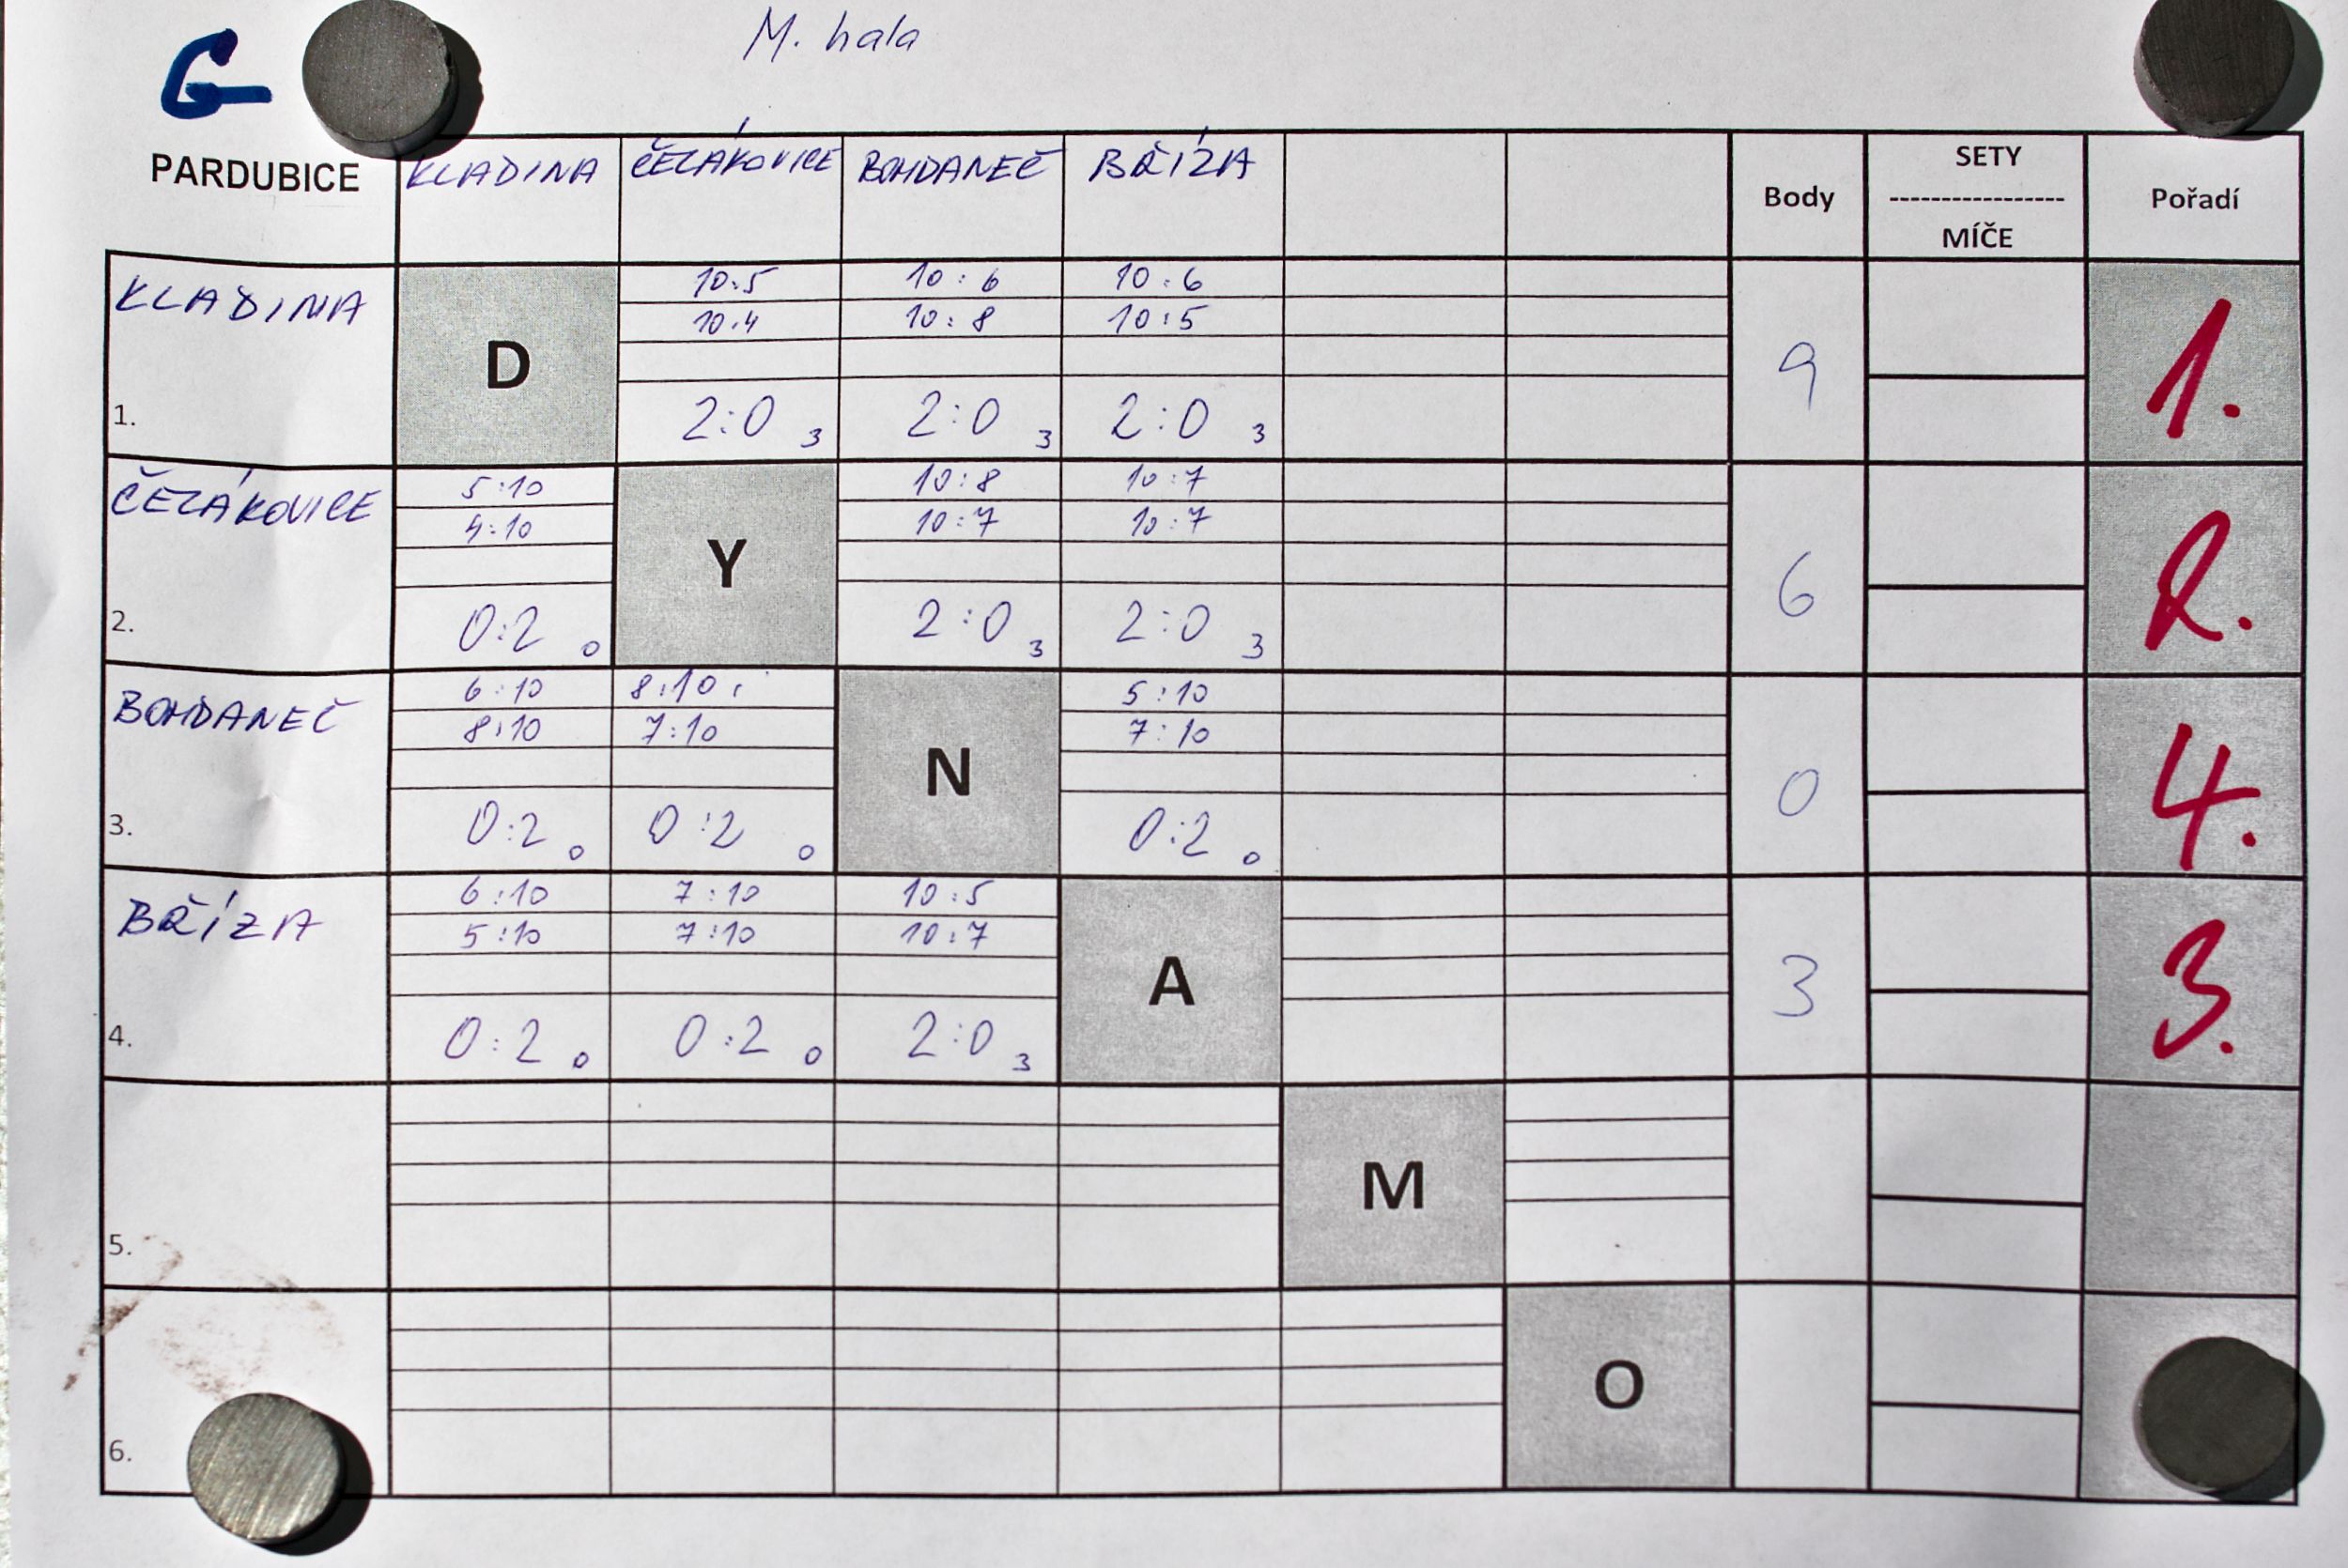 G
M. hala
PARDUBICE KLADINA ČELÁKOVICE BOHDANEČ BŘÍZA Body SETY ----------------- MÍČE Pořadí
KLADINA
1.
D
10:5 10:6 10:6
10:4 10:8 10:5
2:0 3 2:0 3 2:0 3
9
1.
ČELÁKOVICE
2.
5:10 10:8 10:7
4:10 10:7 10:7
Y
0:2 0 2:0 3 2:0 3
6
2.
BOHDANEČ
3.
6:10 8:10 5:10
8:10 7:10 7:10
N
0:2 0 0:2 0 0:2 0
0
4.
BŘÍZA
4.
6:10 7:10 10:5
5:10 7:10 10:7
A
0:2 0 0:2 0 2:0 3
3
3.
5.
M
6.
O